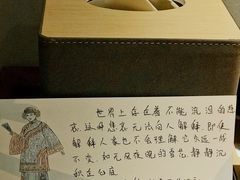 世界上存在着不能流泪的悲
哀,这种悲哀无法向人解释,即使
解释人家也不会理解。它永远一成
不变,如无风夜晚的雪花,静静沉
积在心底